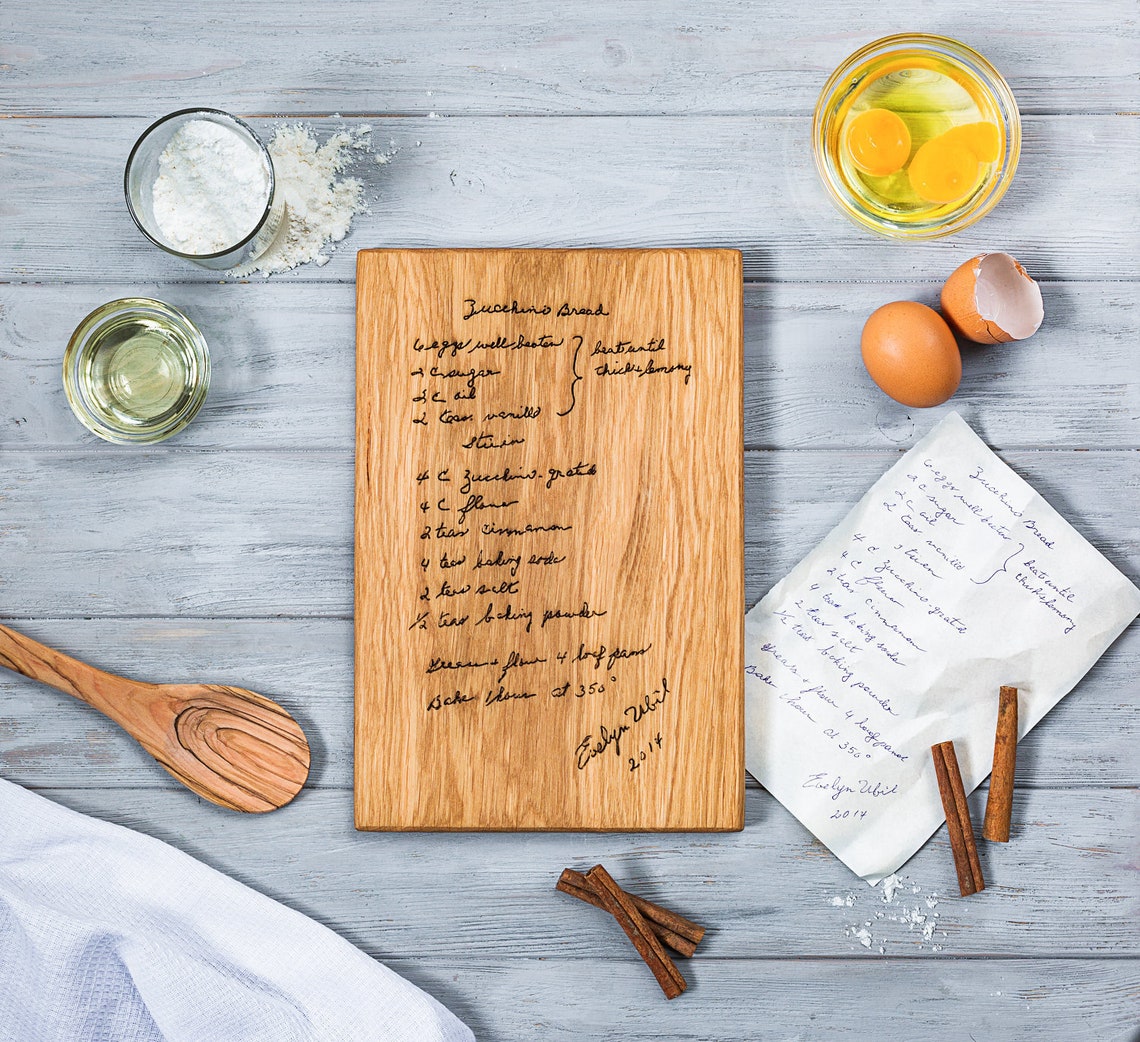 Zucchini Bread
6 eggs well beaten
2 C sugar
2 C oil
2 teas. vanilla
beat until
thick & lemony
Stir in
4 C Zucchini - grated
4 C flour
2 teas cinnamon
4 teas baking soda
2 teas salt
1/2 teas baking powder
Grease + flour 4 loaf pans
Bake 1 hour at 350°
Evelyn Ubil
2014
Zucchini Bread
6 eggs well beaten
2 C sugar
2 C oil
2 teas vanilla
beat until
thick & lemony
Stir in
4 C Zucchini - grated
4 C flour
2 teas cinnamon
4 teas baking soda
2 teas salt
1/2 teas baking powder
Grease + flour 4 loaf pans
Bake 1 hour at 350°
Evelyn Ubil
2014